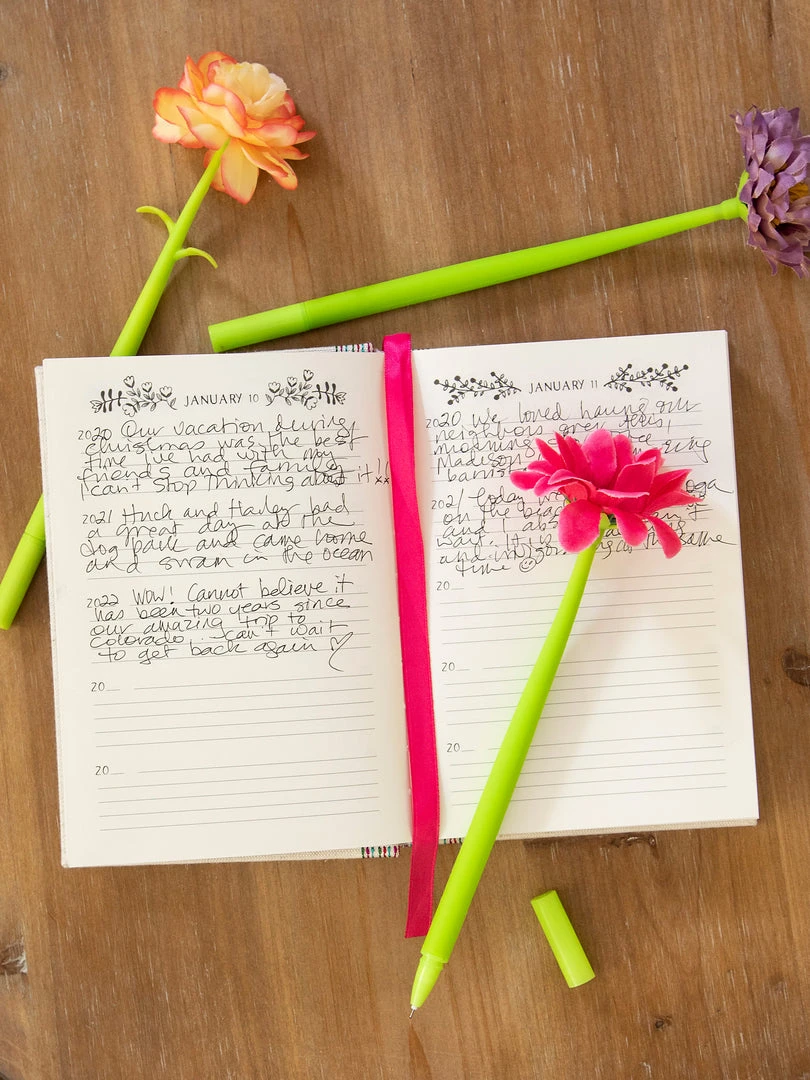 JANUARY 10
2020 Our vacation during
Christmas was the best
time we had with my
friends and family
I can't stop thinking about it xx!!
2021 Huck and Harley had
a great day at the
dog park and came home
and swam in the ocean
2022 WOW! Cannot believe it
has been two years since
our amazing trip to
Colorado. I can't wait
to get back again ♡
20__
20__
JANUARY 11
2020 We loved having our
neighbors over this
morning
Madison
2021 Today
on the
and I
wait. It is
and same
time ☺
20__
20__
20__